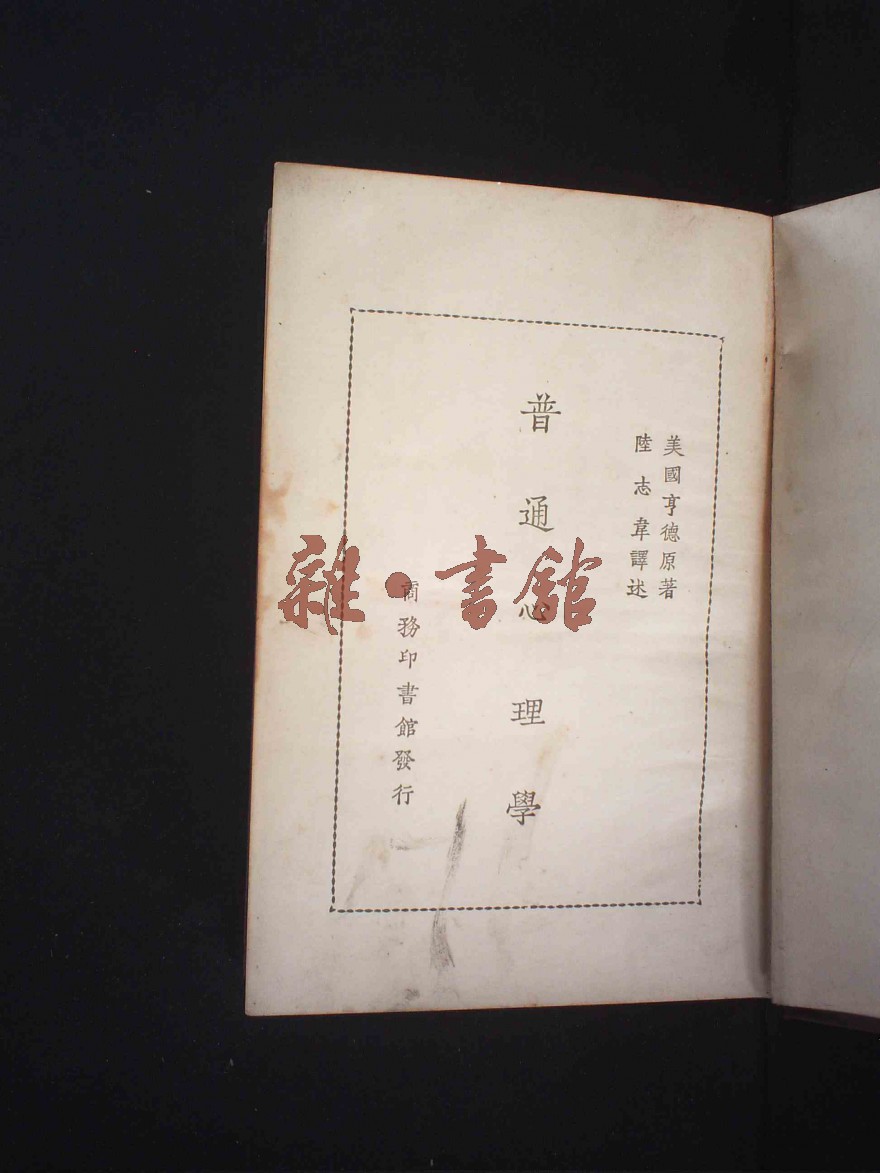 美國亨德原著
陸志韋譯述
普通心理學
商務印書館發行
雜·書館